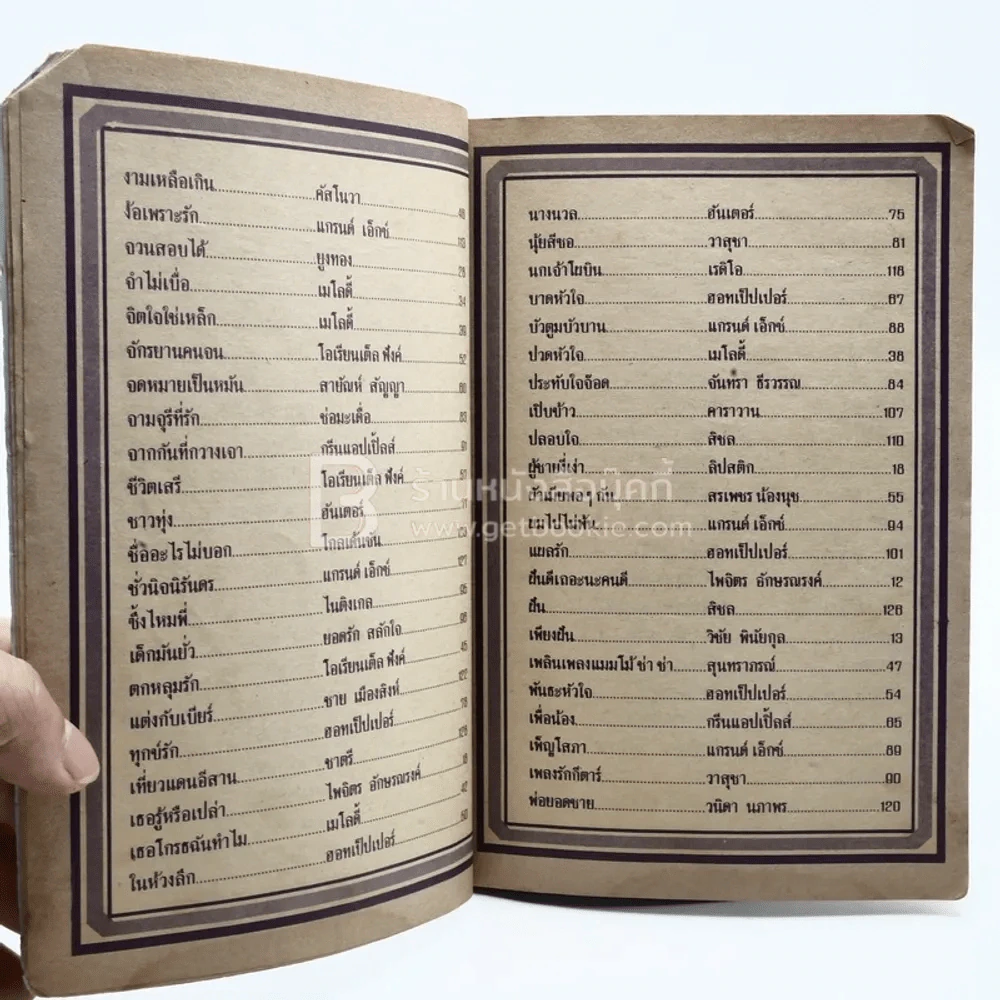 งามเหลือเกิน คัสโนวา 48
ง้อเพราะรัก แกรนด์ เอ็กซ์ 113
จวนสอบได้ ยูงทอง 28
จำไม่เบื่อ เมโลดี้ 34
จิตใจใช่เหล็ก เมโลดี้ 39
จักรยานคนจน โอเรียนเต็ล ฟังค์ 52
จดหมายเป็นหมัน สายัณห์ สัญญา 80
จามจุรีที่รัก ช่อมะเดื่อ 83
จากกันที่กวางเจา กรีนแอปเปิ้ลส์ 91
ชีวิตเสรี โอเรียนเต็ล ฟังค์
ชาวทุ่ง ฮันเตอร์
ชื่ออะไรไม่บอก โกลเด้นซัน
ชั่วนิจนิรันดร แกรนด์ เอ็กซ์ 127
ซึ้งไหมพี่ ไนติงเกล 95
เด็กมันยั่ว ยอดรัก สลักใจ 96
ตกหลุมรัก โอเรียนเต็ล ฟังค์ 45
แต่งกับเบียร์ ชาย เมืองสิงห์ 122
ทุกข์รัก ฮอทเป็ปเปอร์ 78
เที่ยวแดนอีสาน ชาตรี 128
เธอรู้หรือเปล่า ไพจิตร อักษรณรงค์ 18
เธอโกรธฉันทำไม เมโลดี้ 42
ในห้วงลึก ฮอทเป็ปเปอร์ 60
นางนวล ฮันเตอร์ 75
นุ้ยสีซอ วาสุชา 81
นกเจ้าโผบิน เรดิโอ 118
บาดหัวใจ ฮอทเป็ปเปอร์ 67
บัวตูมบัวบาน แกรนด์ เอ็กซ์ 88
ปวดหัวใจ เมโลดี้ 38
ประทับใจจ๊อด จันทรา ธีรวรรณ 84
เปิบข้าว คาราวาน 107
ปลอบใจ สิชล 110
ผู้ชายขี้เหงา ลิปสติก 18
ผัวเมียพอๆ กัน สรเพชร น้องนุช 55
ร้านหนังสือบุ๊คกี้
www.getbookie.com
ผมไปไม่พ้น แกรนด์ เอ็กซ์ 94
แผลรัก ฮอทเป็ปเปอร์ 101
ฝันดีเถอะนะคนดี ไพจิตร อักษรณรงค์ 12
ฝืน สิชล 126
เพียงฝัน วิชัย พินัยกุล 13
เพลินเพลงแมมโม้ ช่า ช่า สุนทราภรณ์ 47
พันธะหัวใจ ฮอทเป็ปเปอร์ 54
เพื่อน้อง กรีนแอปเปิ้ลส์ 65
เพ็ญโสภา แกรนด์ เอ็กซ์ 69
เพลงรักกีตาร์ วาสุชา 90
พ่อยอดชาย วนิดา นภาพร 120